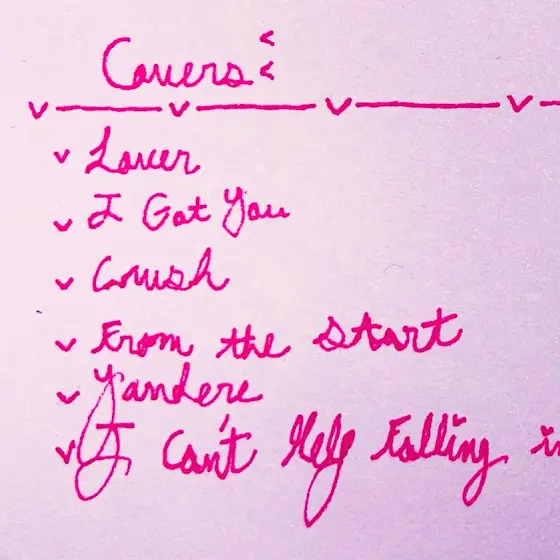 Covers:
Lover
I Got You
Crush
From the Start
Yandere
I Can't Help Falling in